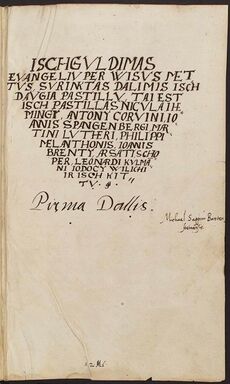 ISCHGVLDIMAS
EVANGELIV PER WISVS MET
TVS, SVRINKTAS DALIMIS ISCH
DAVGIA PASTILLV, TAI EST
ISCH PASTILLAS NICVLAI HE
MINGY, ANTONY CORVINI, IO
ANNIS SPANGENBERGI, MAR
TINI LVTHERI, PHILIPPI
MELANTHONIS, IOANNIS
BRENTY, ARSATI SCHO
PER, LEONARDI KVLMA
NI IODOCY WILICHI
IR ISCH KIT
TV.
Pirma Dallis.
Michael